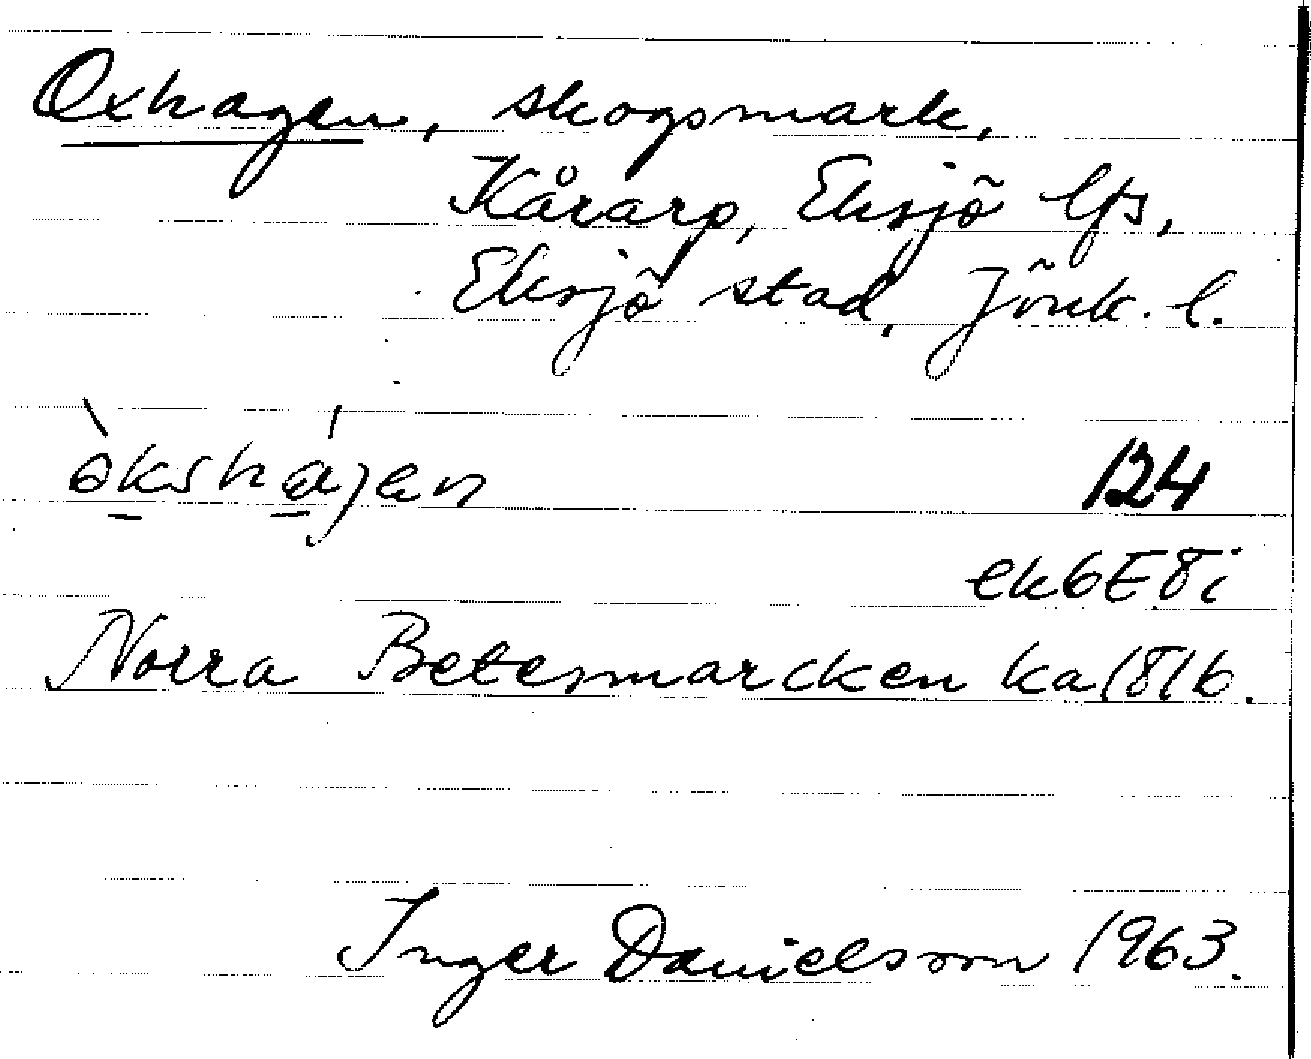 Oxhagen, skogsmark,
Kårarp, Eksjö lfs,
Eksjö stad, Jönk. l.
òkshájen
124
ek6E8i
Norra Betesmarcken ka 1816.
Inger Danielsson 1963.